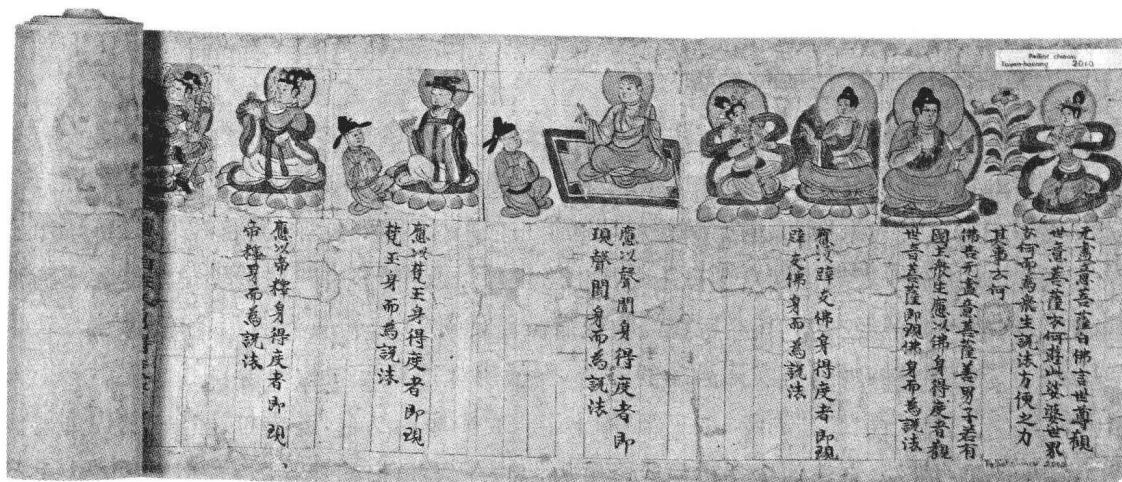 Pelliot chinois
Touen-houang 2010
无盡意菩薩白佛言世尊觀
世音菩薩云何遊此娑婆世界
云何而為衆生說法方便之力
其事云何
佛告无盡意菩薩善男子若有
國土衆生應以佛身得度者觀
世音菩薩即現佛身而為說法
應以辟支佛身得度者即現
辟支佛身而為說法
應以聲聞身得度者即
現聲聞身而為說法
應以梵王身得度者即現
梵王身而為說法
應以帝釋身得度者即現
帝釋身而為說法
Pelliot chinois 2010